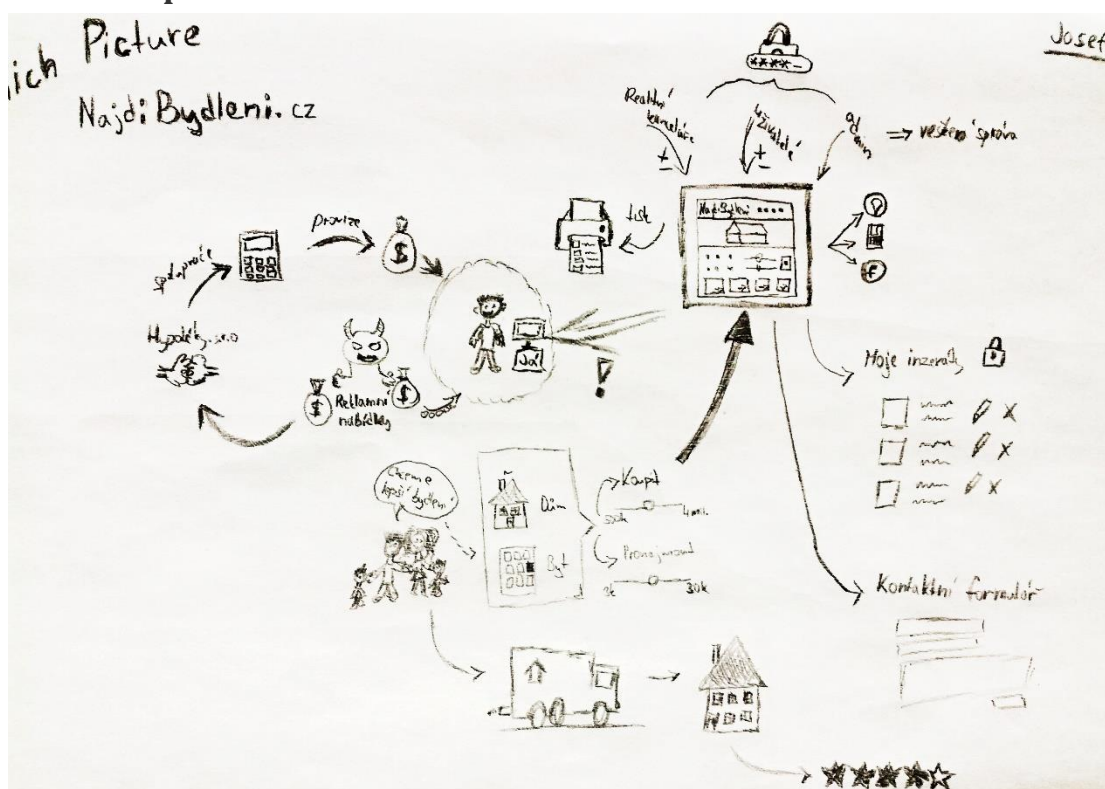 ich Picture
Josef
NajdiBydleni.cz
****
Realitní
kanceláře
±
uživatelé
±
admin
=> veškerá správa
NajdiBydlení
tisk
provize
$
spolupráce
Hypotéky s.r.o
$
$
Reklamní
nabídky
!
f
Moje inzeráty
X
X
X
Chceme
lepší bydlení
Dům
Byt
Koupit
500k
4mil.
Pronajmout
30k
Kontaktní formulář